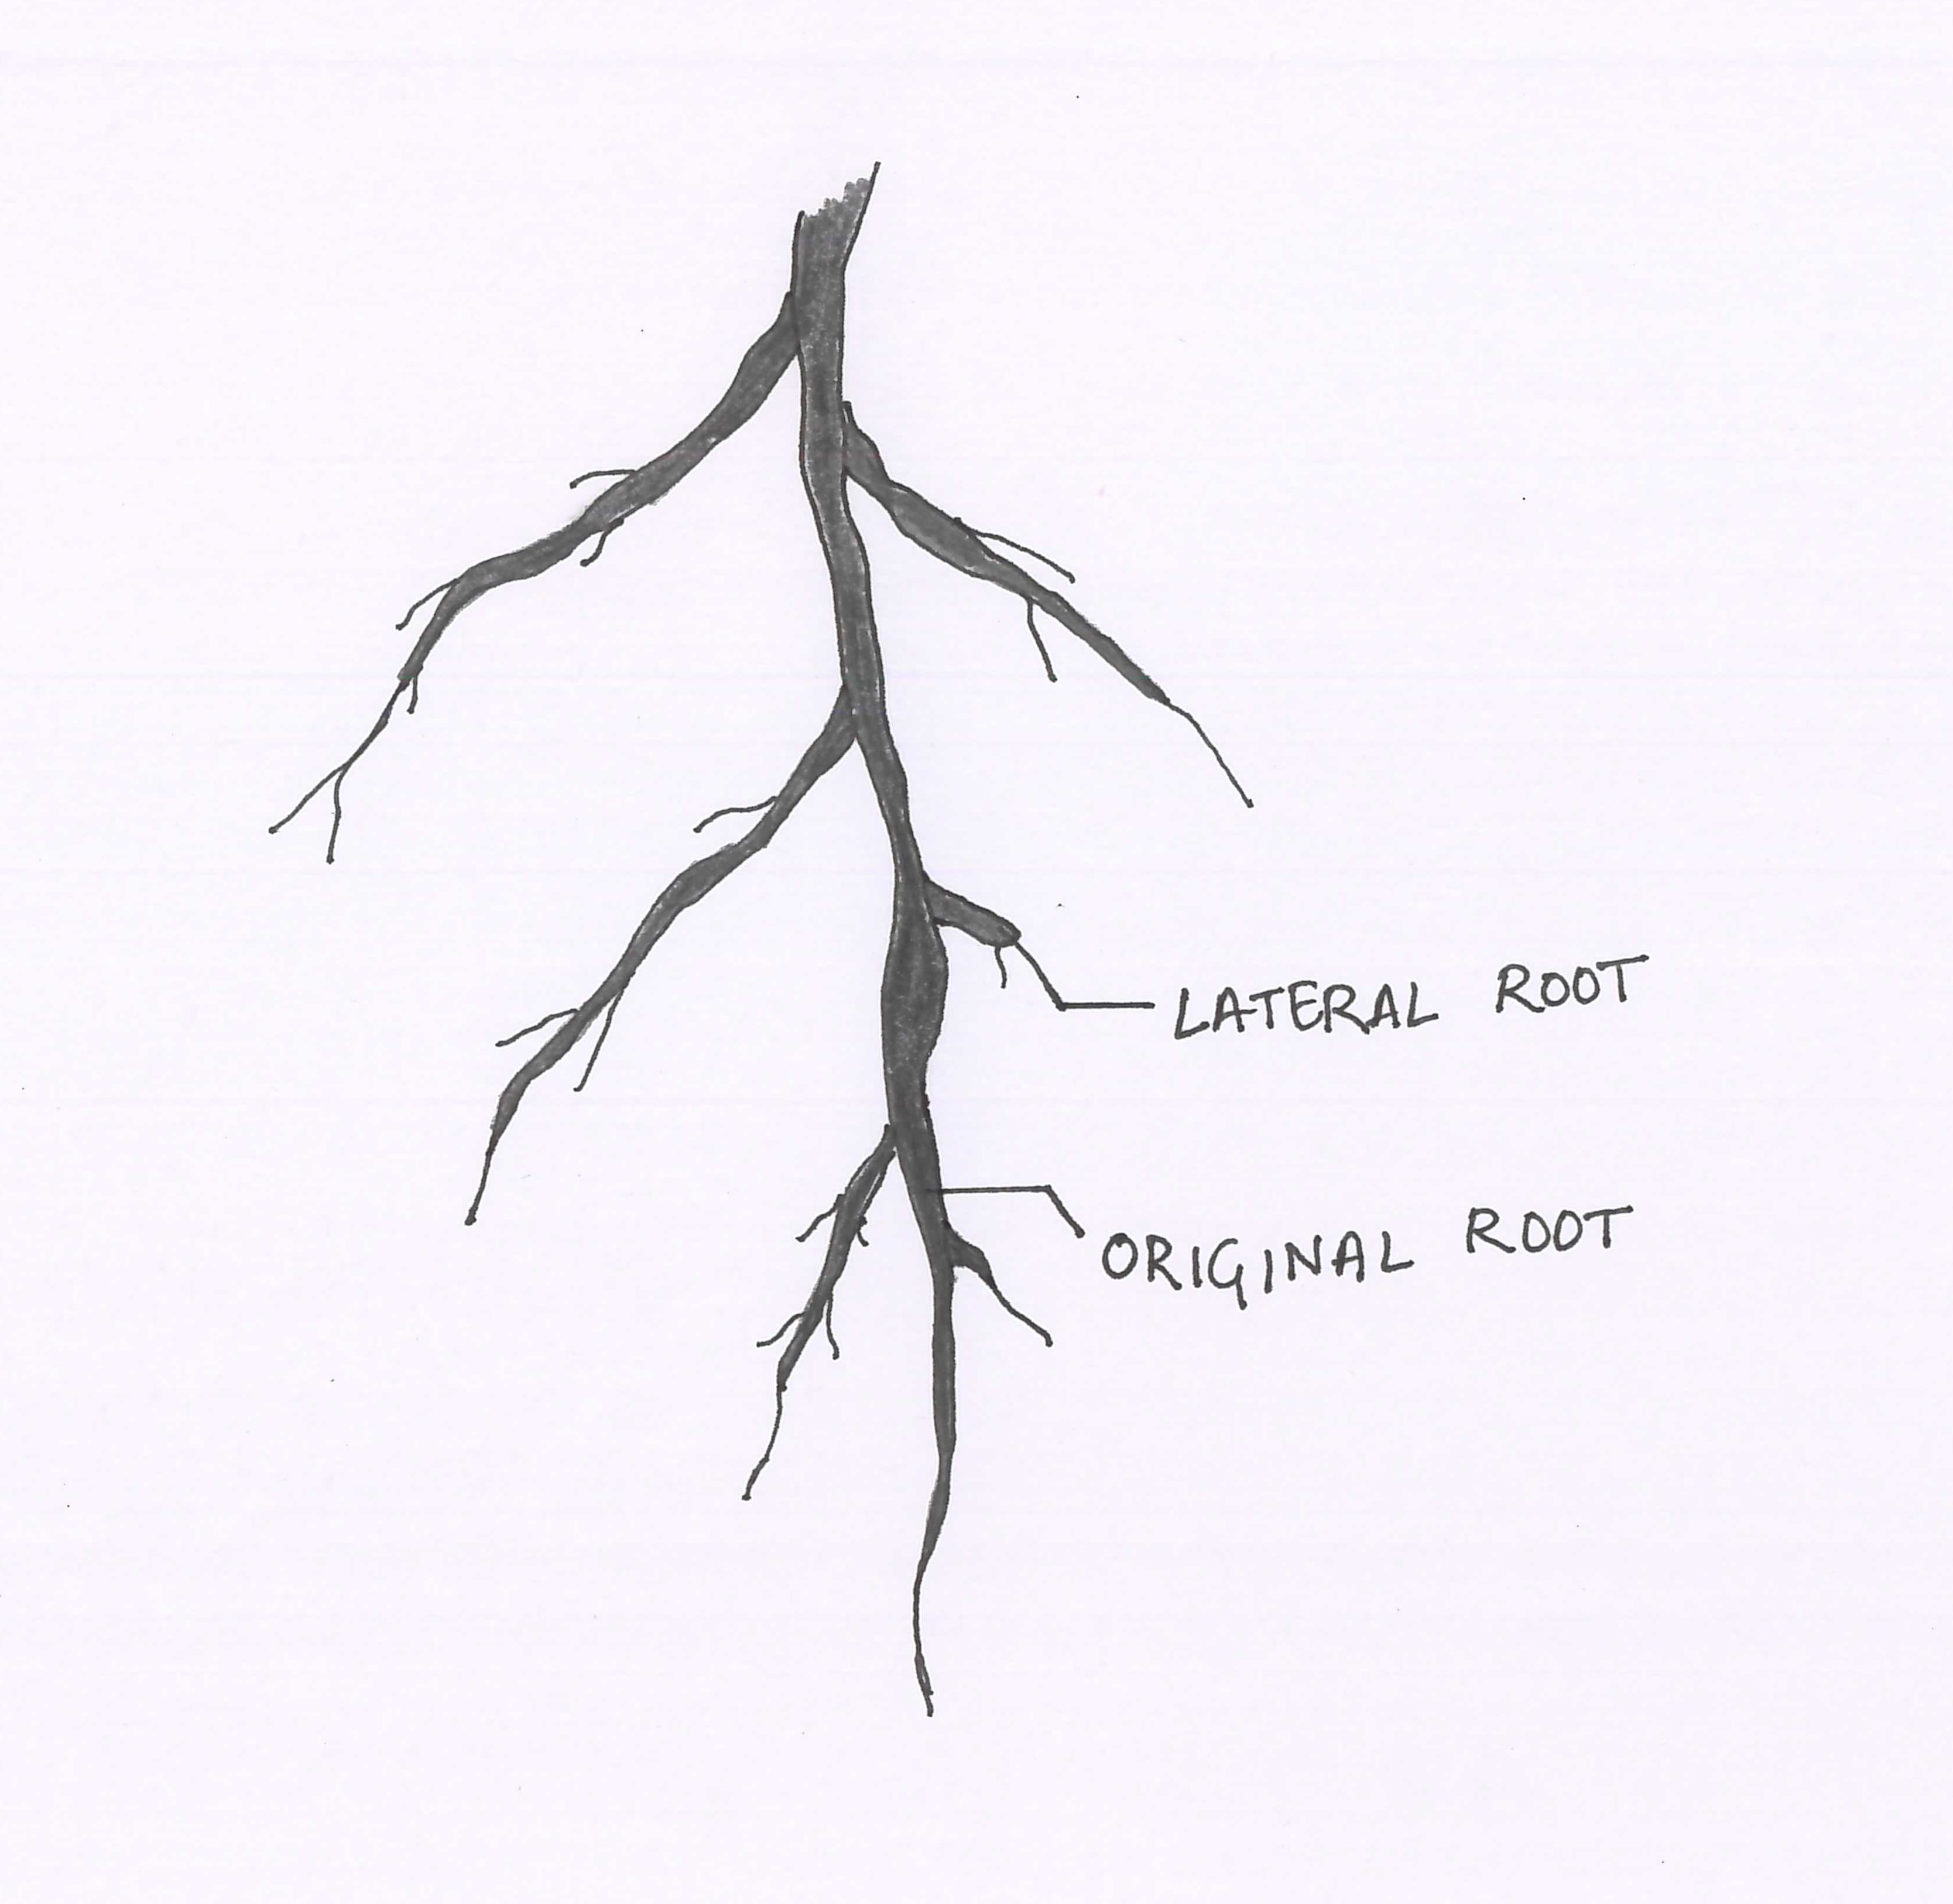 LATERAL ROOT
ORIGINAL ROOT